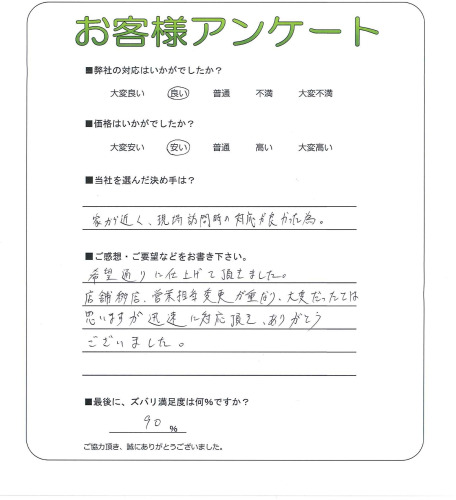 お客様アンケート
■弊社の対応はいかがでしたか？
大変良い 良い 普通 不満 大変不満
■価格はいかがでしたか？
大変安い 安い 普通 高い 大変高い
■当社を選んだ決め手は？
家が近く、現場訪問時の対応が良かった為。
■ご感想・ご要望などをお書き下さい。
希望通りに仕上げて頂きました。
店舗移店、営業担当変更が重なり、大変だったとは
思いますが迅速に対応頂き、ありがとう
ございました。
■最後に、ズバリ満足度は何%ですか？
90 %
ご協力頂き、誠にありがとうございました。